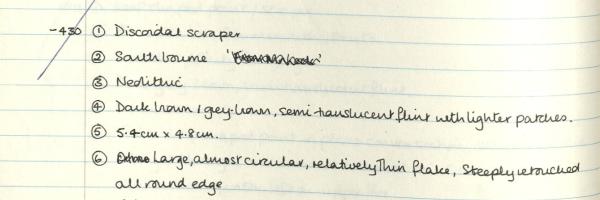 -430 ① Discoidal scraper
② Southbourne
③ Neolithic
④ Dark brown / grey-brown, semi-translucent flint with lighter patches.
⑤ 5.4cm x 4.8cm.
⑥ Large, almost circular, relatively thin flake, Steeply retouched
all round edge